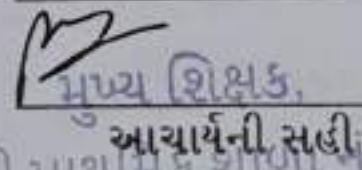 મુખ્ય શિક્ષક,
આચાર્યની સહી